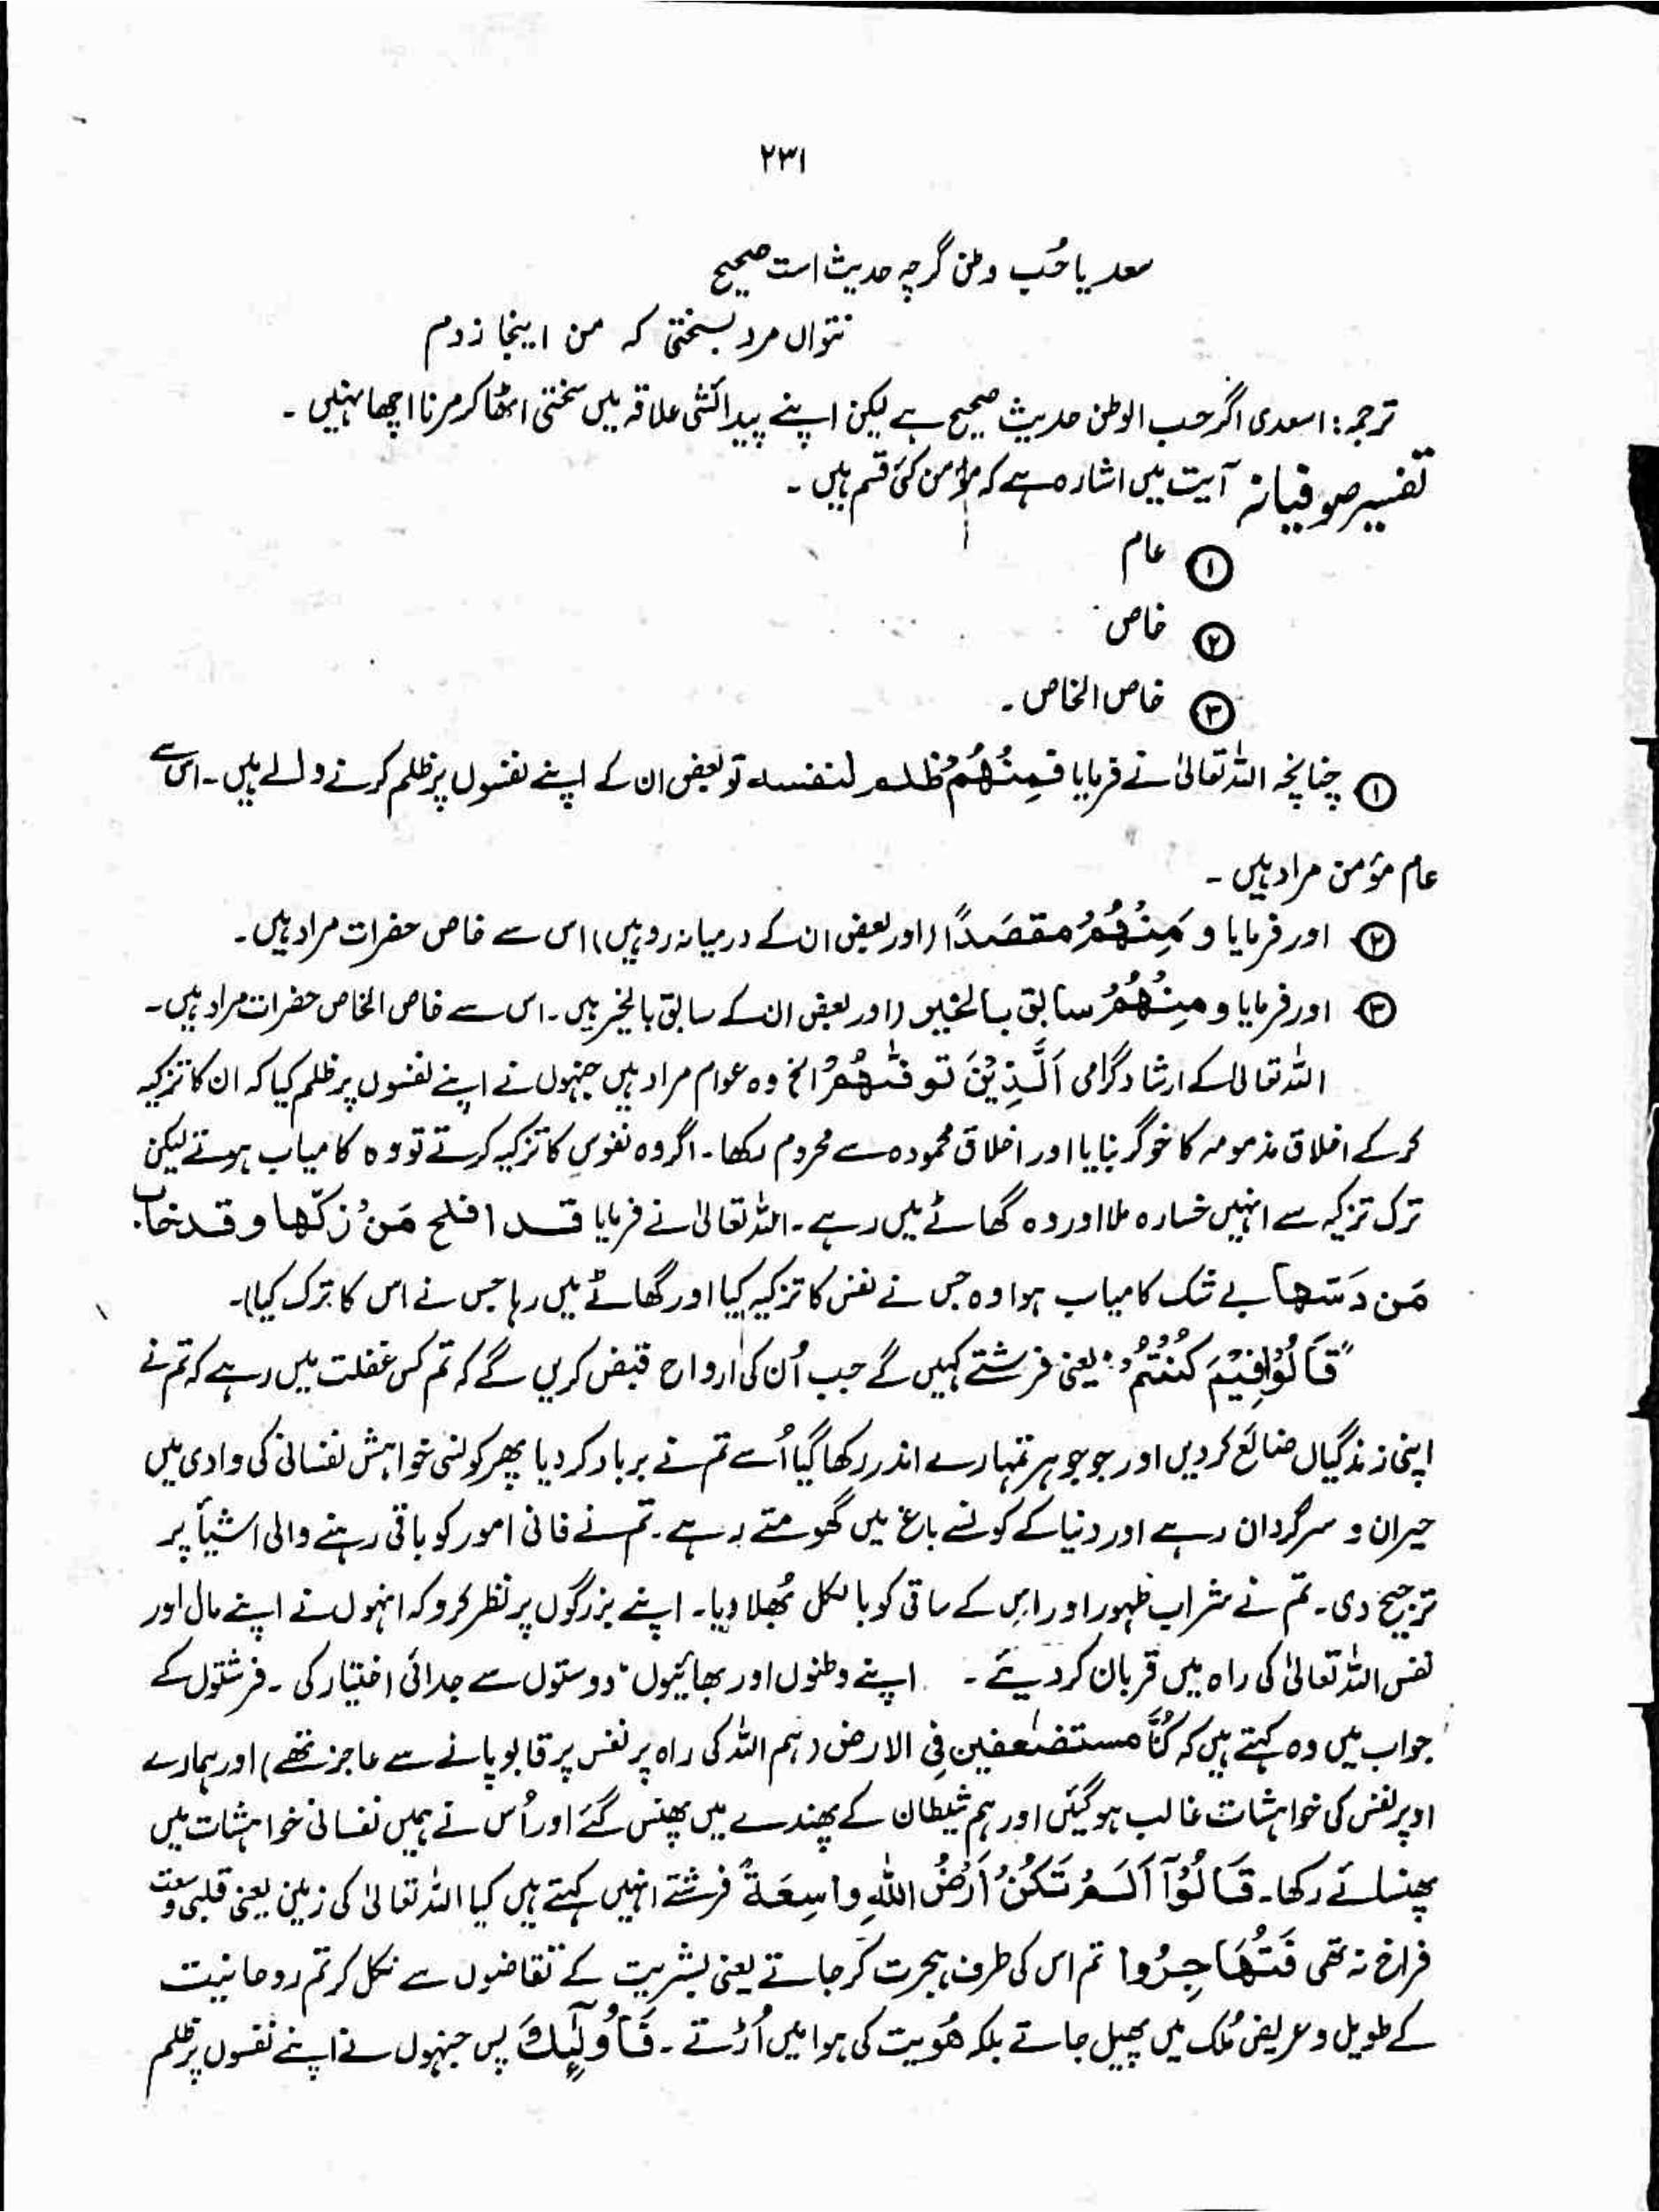 ۲۳۱
سعدیا حُب وطن گرچہ حدیث است صحیح
نتواں مرد بسختی کہ من اینجا زدم
ترجمہ: اسعدی اگر حب الوطن حدیث صحیح ہے لیکن اپنے پیدائشی علاقہ میں سختی اٹھا کر مرنا اچھا نہیں ۔
تفسیر صوفیانہ آیت میں اشارہ ہے کہ مؤمن کئی قسم ہیں ۔
① عام
② خاص
③ خاص الخاص ۔
① چنانچہ اللہ تعالیٰ نے فرمایا فَمِنْهُمْ ظلم لنفسه تو بعض ان کے اپنے نفسوں پر ظلم کرنے والے ہیں ۔ اس سے
عام مؤمن مراد ہیں ۔
② اور فرمایا و مِنْهُمْ مقصَدًا (اور بعض ان کے درمیانہ رو ہیں) اس سے خاص حضرات مراد ہیں ۔
③ اور فرمایا و مِنْهُمْ سابق بالخیر (اور بعض ان کے سابق بالخیر ہیں ۔ اس سے خاص الخاص حضرات مراد ہیں ۔
اللہ تعالیٰ کے ارشاد گرامی اَلَّذِیْنَ توفّٰهُمْ الخ وہ عوام مراد ہیں جنہوں نے اپنے نفسوں پر ظلم کیا کہ ان کا تزکیہ
کر کے اخلاق مذمومہ کا خوگر بنایا اور اخلاق محمودہ سے محروم رکھا ۔ اگر وہ نفوس کا تزکیہ کرتے تو وہ کامیاب ہوتے لیکن
ترک تزکیہ سے انہیں خسارہ ملا اور وہ گھاٹے میں رہے ۔ اللہ تعالیٰ نے فرمایا قد افلح مَنْ زکّٰها و قد خاب
مَن دَسّٰها بے شک کامیاب ہوا وہ جس نے نفس کا تزکیہ کیا اور گھاٹے میں رہا جس نے اس کا ترک کیا)۔
"قَالُوْا فِیْمَ کُنْتُمْ" یعنی فرشتے کہیں گے جب اُن کی ارواح قبض کریں گے کہ تم کس غفلت میں رہے کہ تم نے
اپنی زندگیاں ضائع کر دیں اور جو جوہر تمہارے اندر رکھا گیا اُسے تم نے برباد کر دیا پھر کونسی خواہش نفسانی کی وادی میں
حیران و سرگردان رہے اور دنیا کے کونسے باغ میں گھومتے رہے ۔ تم نے فانی امور کو باقی رہنے والی اشیأ پر
ترجیح دی ۔ تم نے شراب طہور اور اس کے ساقی کو بالکل بُھلا دیا ۔ اپنے بزرگوں پر نظر کرو کہ انہوں نے اپنے مال اور
نفس اللہ تعالیٰ کی راہ میں قربان کر دیئے ۔ اپنے وطنوں اور بھائیوں، دوستوں سے جدائی اختیار کی ۔ فرشتوں کے
جواب میں وہ کہتے ہیں کہ کُنَّا مستضعفین فِی الارض (ہم اللہ کی راہ پر نفس پر قابو پانے سے عاجز تھے) اور ہمارے
اوپر نفس کی خواہشات غالب ہو گئیں اور ہم شیطان کے پھندے میں پھنس گئے اور اُس نے ہمیں نفسانی خواہشات میں
پھنسائے رکھا ۔ قَالُوْٓا اَلَمْ تَکُنْ اَرْضُ اللّٰہِ واسِعَةً فرشتے انہیں کہتے ہیں کیا اللہ تعالیٰ کی زمین یعنی قلبی وسعت
فراخ نہ تھی فَتُهَاجِرُوا تم اس کی طرف ہجرت کر جاتے یعنی بشریت کے تقاضوں سے نکل کر تم روحانیت
کے طویل و عریض مُلک میں پھیل جاتے بلکہ ھُوِیت کی ہوا میں اُڑتے ۔ فَاُولٰٓئِكَ پس جنہوں نے اپنے نفسوں پر ظلم